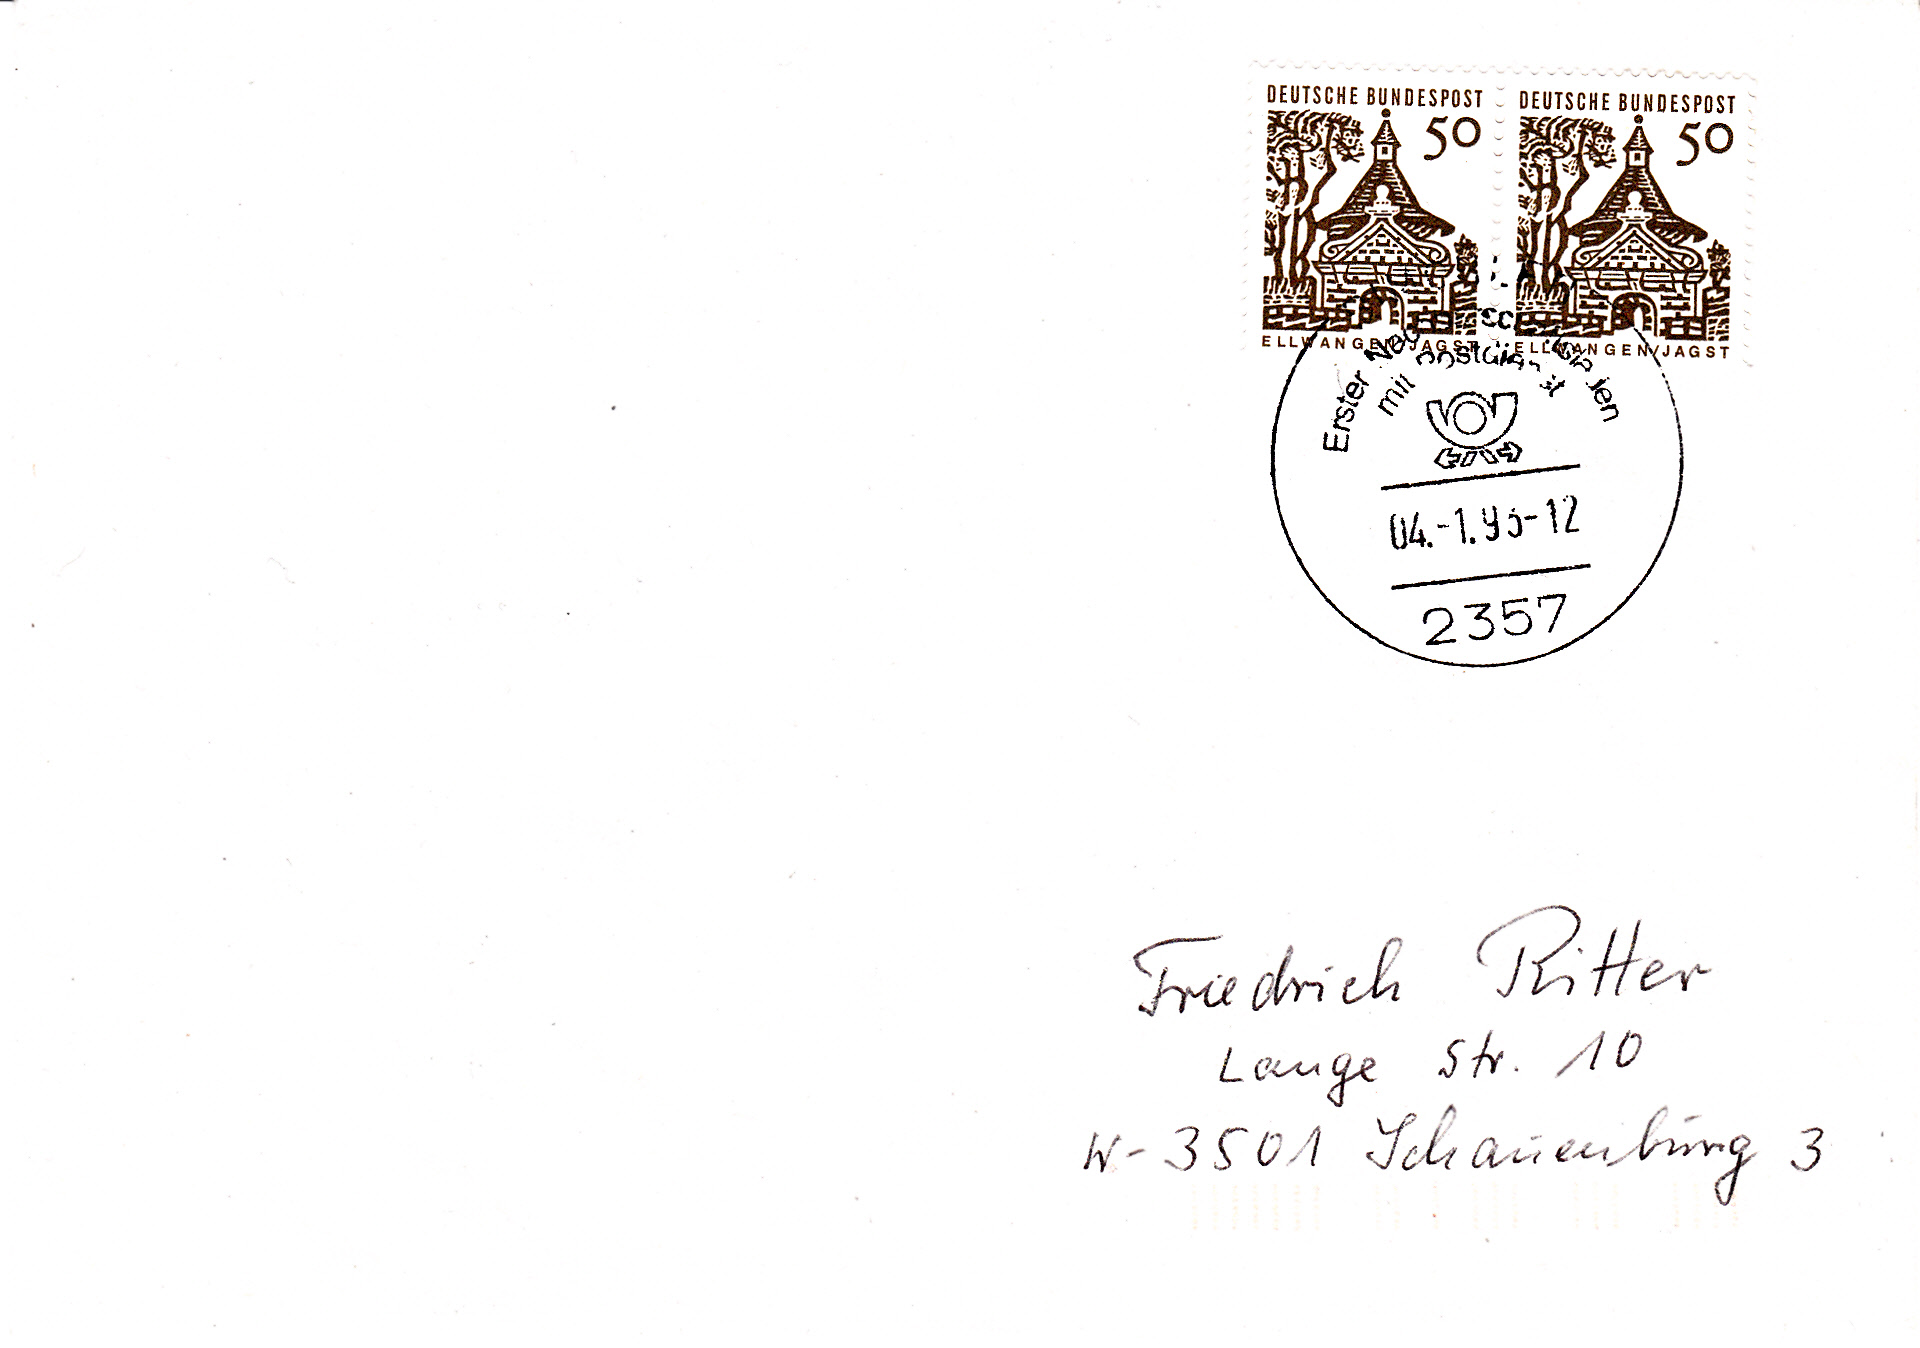 DEUTSCHE BUNDESPOST
50
ELLWANGEN/JAGST
DEUTSCHE BUNDESPOST
50
ELLWANGEN/JAGST
Erster
mit
04.-1.93-12
2357
Friedrich Ritter
Lange Str. 10
W-3501 Schauenburg 3